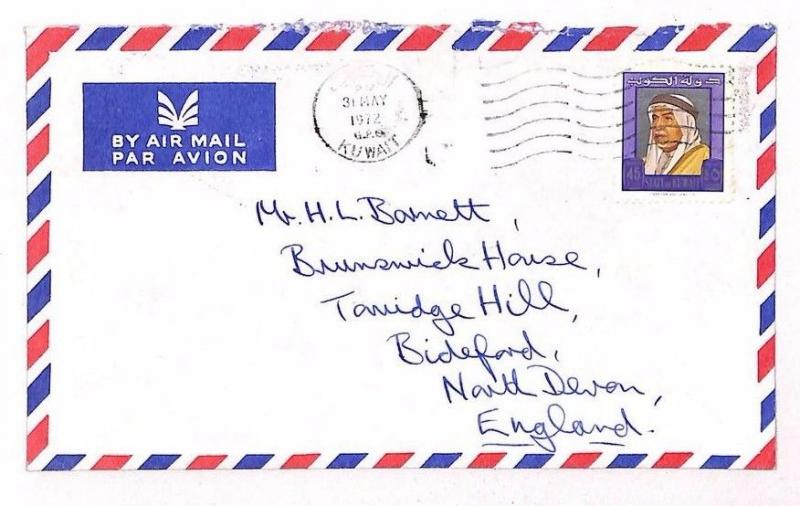 31 MAY
1972
G.P.O
KUWAIT
دولة الكويت
45 ٤٥
STATE OF KUWAIT
BY AIR MAIL
PAR AVION
Mr. H. L. Barnett,
Brunswick House,
Torridge Hill,
Bideford,
North Devon,
England.